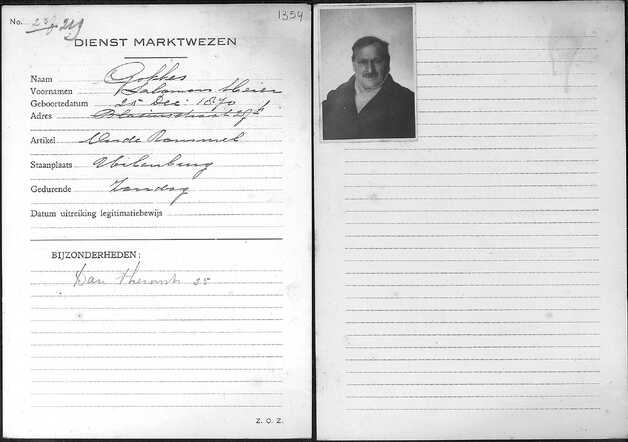 No. 25/219
1354
DIENST MARKTWEZEN
Naam Gokkes
Voornamen Salomon Meier
Geboortedatum 25 Dec: 1870
Adres Blasiusstraat
Artikel Oude Rommel
Staanplaats Uilenburg
Gedurende Zondag
Datum uitreiking legitimatiebewijs
BIJZONDERHEDEN:
Dan Theronstr 25
Z. O. Z.